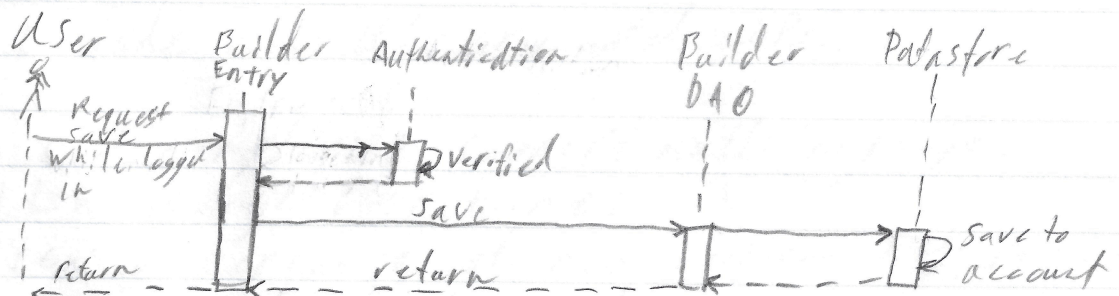 User
Builder
Entry
Authentication
Builder
DAO
Datastore
Request
save
while logged
in
verified
save
save to
account
return
return